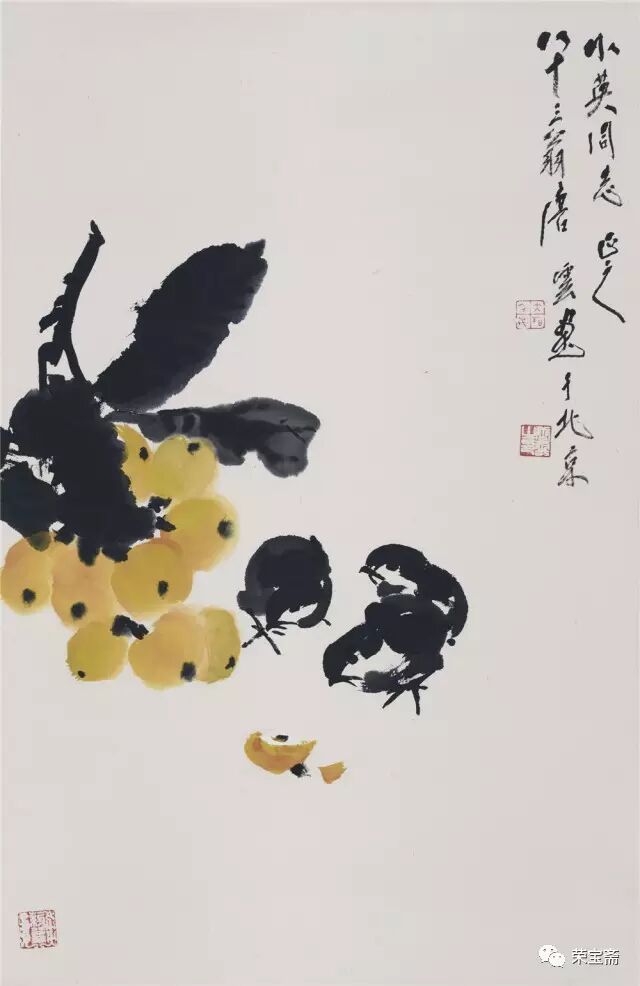 水英同志正之
八十三翁唐雲画于北京
荣宝斋